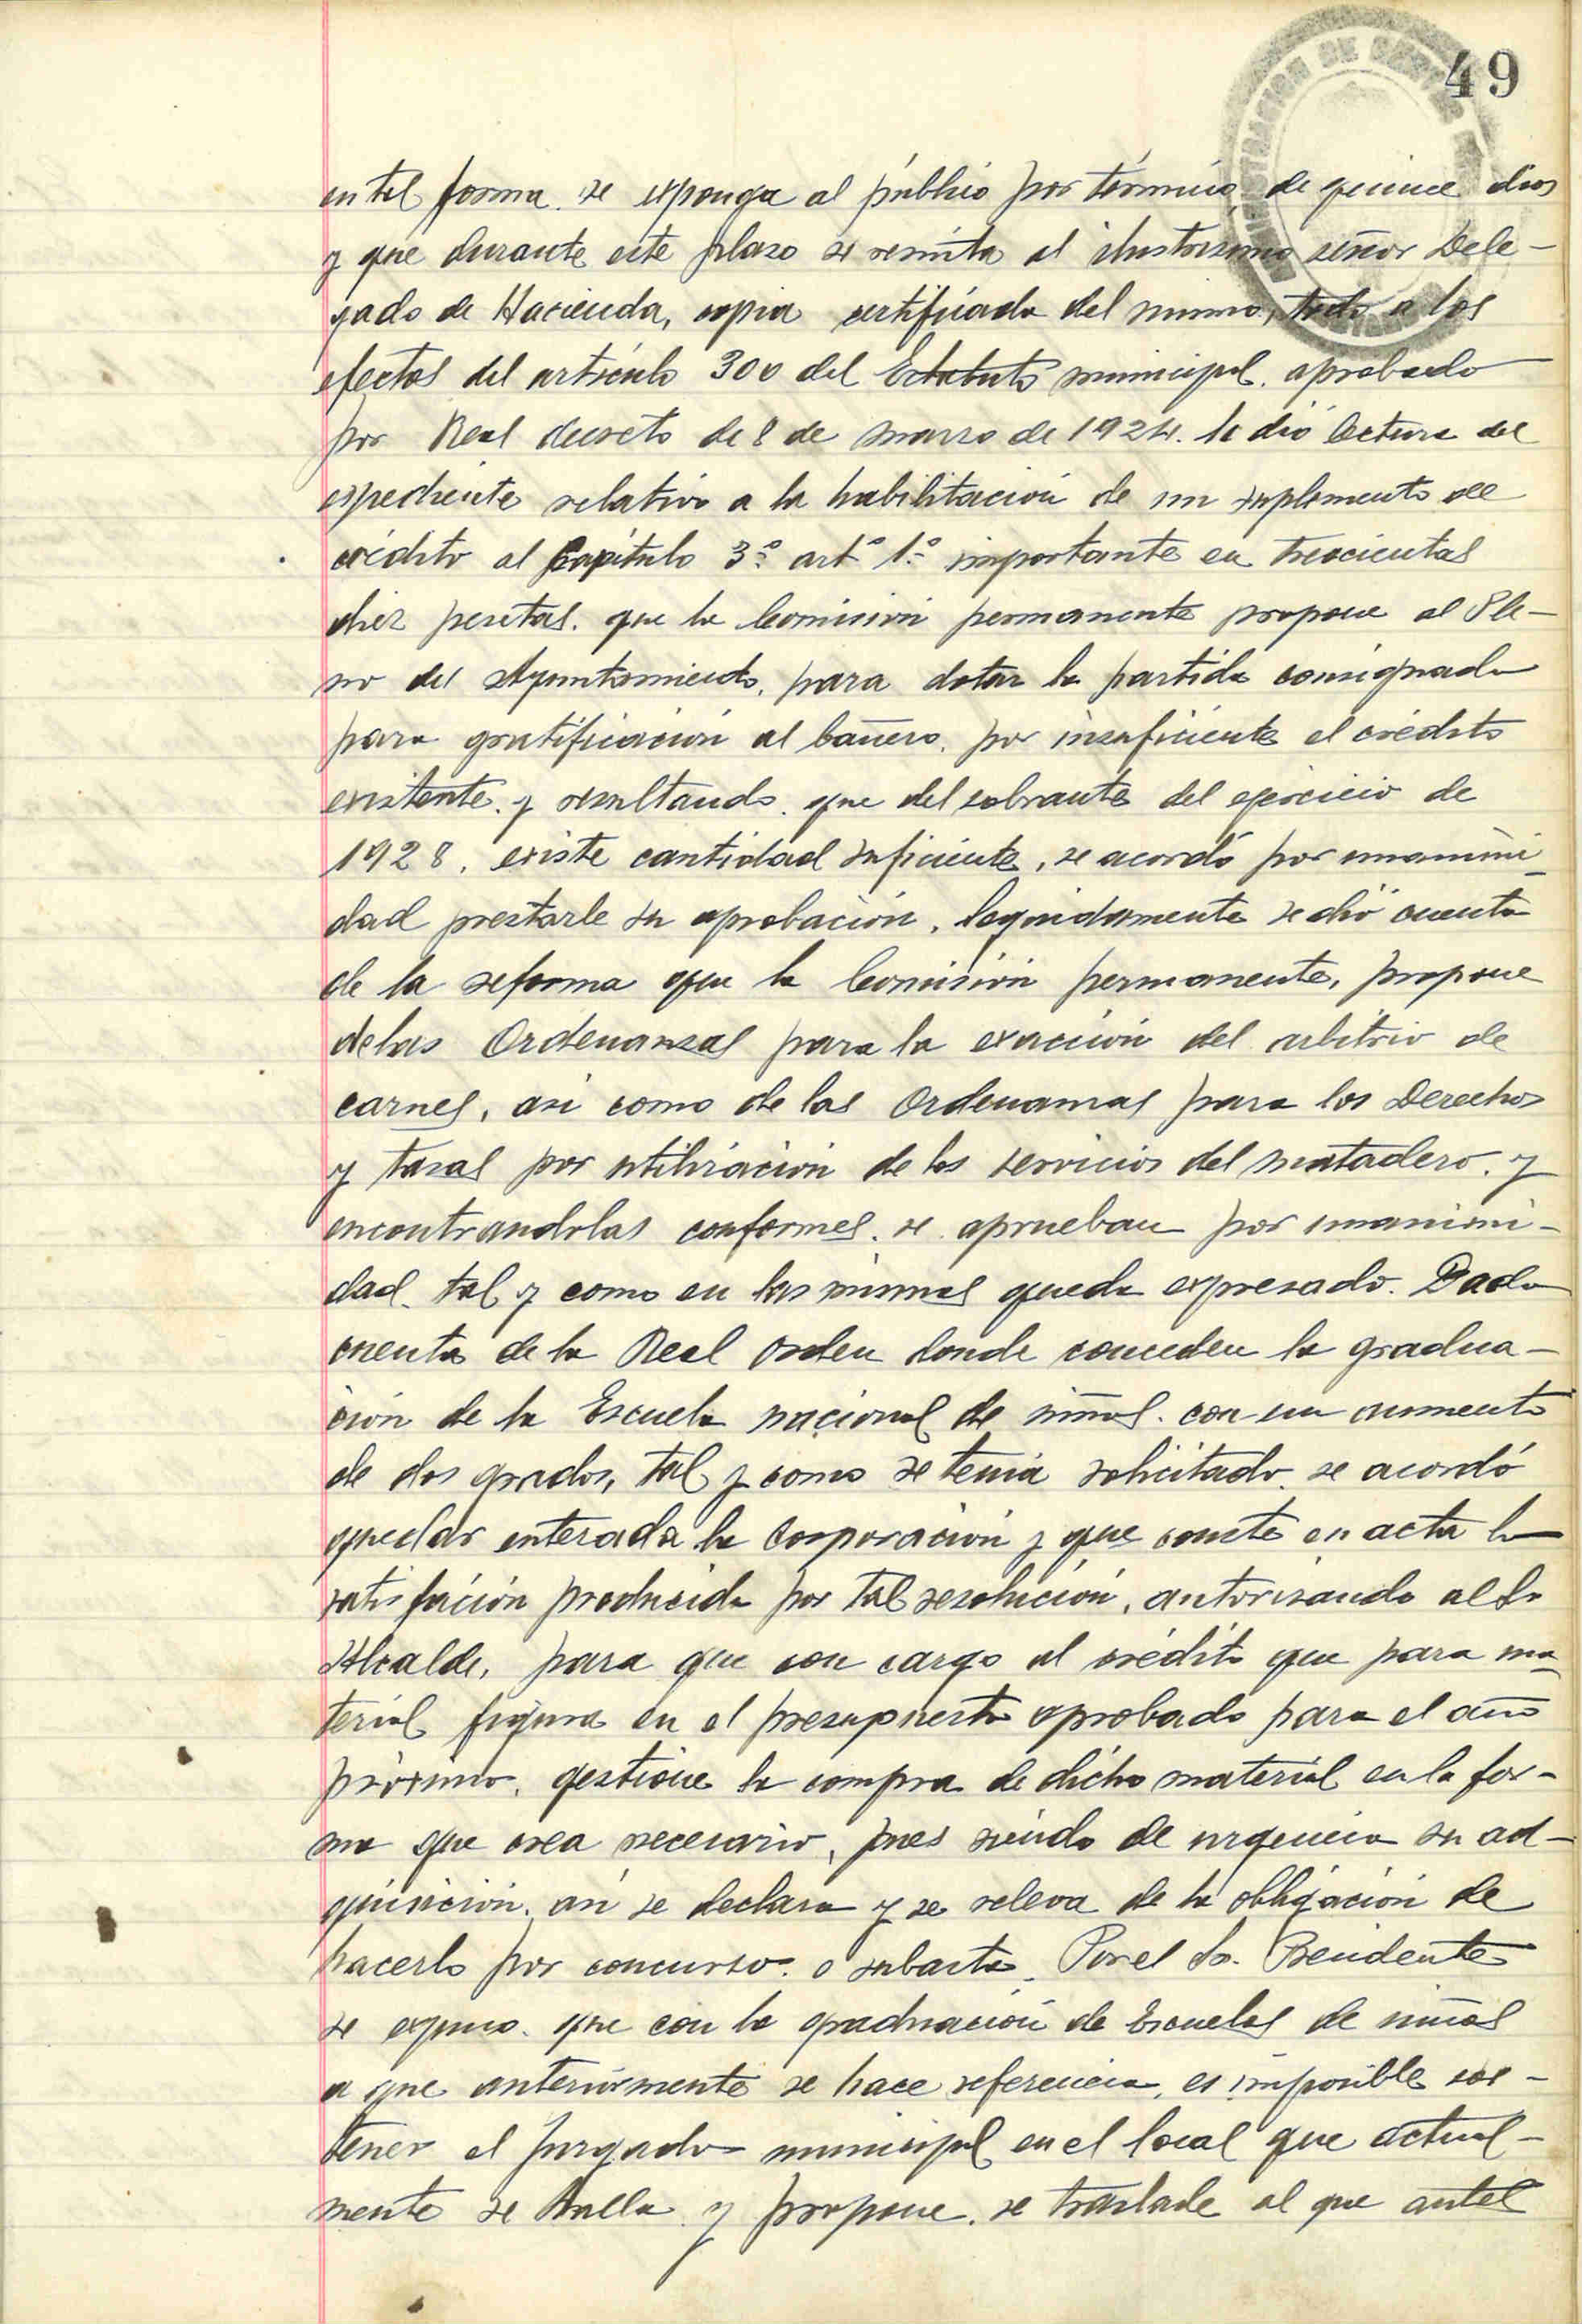 49
en tal forma se exponga al público por término de quince dias
y que durante este plazo se remita al ilustrisimo señor Dele-
gado de Hacienda, copia certificada del mismo, todo a los
efectos del artículo 300 del Estatuto municipal aprobado
por Real decreto de 8 de marzo de 1924. Se dió lectura del
expediente relativo a la habilitación de un suplemento de
crédito al Capítulo 3º artº 1º importante en trescientas
diez pesetas que la Comisión permanente propone al Ple-
no del Ayuntamiento, para dotar la partida consignada
para gratificación al bañero, por insuficiente el crédito
existente y resultando que del sobrante del ejercicio de
1928, existe cantidad suficiente, se acordó por unanimi-
dad prestarle su aprobación. Seguidamente se dió cuenta
de la reforma que la Comisión permanente, propone
de las Ordenanzas para la exacción del arbitrio de
carnes, asi como de las Ordenanzas para los Derechos
y tasas por utilización de los servicios del matadero, y
encontrandolas conformes se aprueban por unanimi-
dad tal y como en las mismas queda expresado. Dada
cuenta de la Real orden donde conceden la gradua-
ción de la Escuela nacional de niños con un aumento
de dos grados, tal y como se tenia solicitado se acordó
quedar enterada la Corporación y que conste en acta la
satisfación producida por tal resolución, autorizando al Sr
Alcalde, para que con cargo al crédito que para ma-
terial figura en el presupuesto aprobado para el año
próximo, gestione la compra de dicho material en la for-
ma que crea necesario, pues siendo de urgencia su ad-
quisición, asi se declara y se releva de la obligación de
hacerlo por concurso o subasta. Por el Sr. Presidente
se expuso que con la graduación de Escuelas de niños
a que anteriormente se hace referencia, es imposible sos-
tener el Juzgado municipal en el local que actual-
mente se halla y propone se traslade al que antes